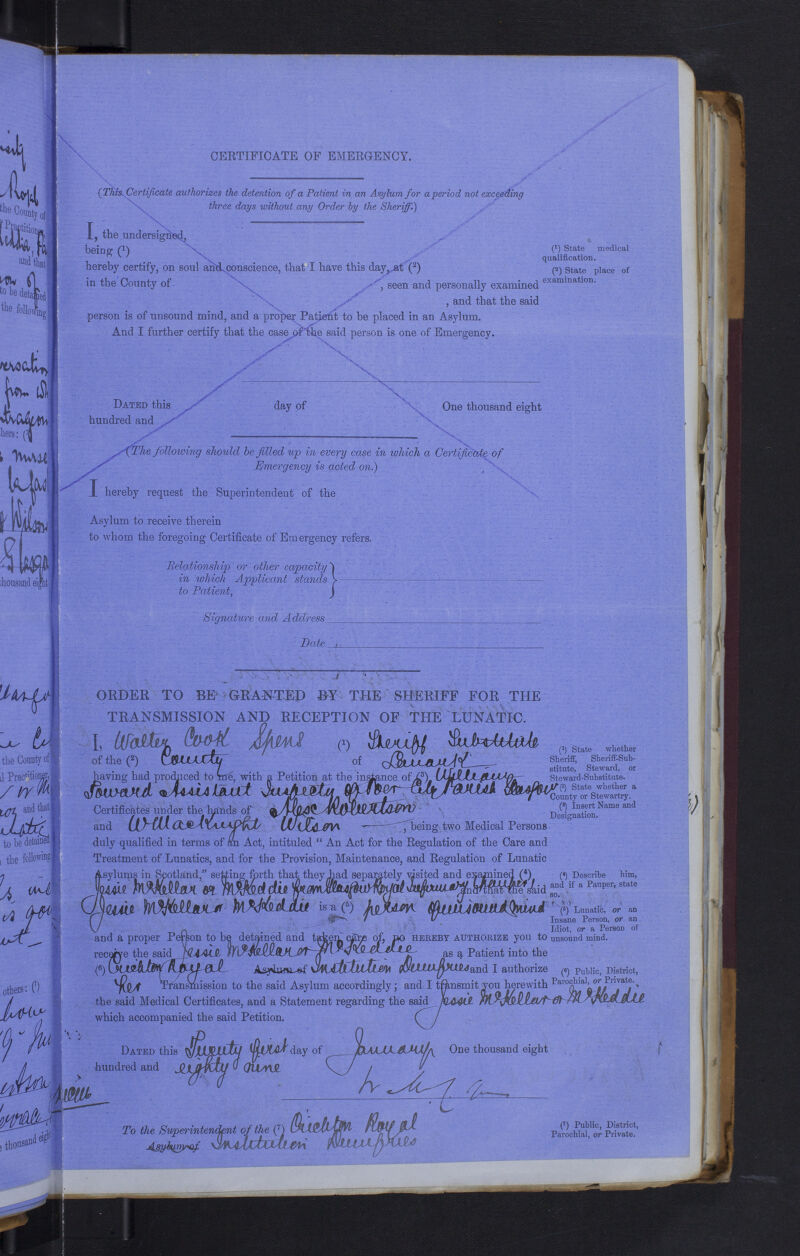 CERTIFICATE OF EMERGENCY.
(This Certificate authorizes the detention of a Patient in an Asylum for a period not exceeding
three days without any Order by the Sheriff.)
I, the undersigned,
being (¹)
hereby certify, on soul and conscience, that I have this day, at (²)
in the County of , seen and personally examined
, and that the said
person is of unsound mind, and a proper Patient to be placed in an Asylum.
And I further certify that the case of the said person is one of Emergency.
(¹) State medical
qualification.
(²) State place of
examination.
DATED this day of One thousand eight
hundred and
(The following should be filled up in every case in which a Certificate of
Emergency is acted on.)
I hereby request the Superintendent of the
Asylum to receive therein
to whom the foregoing Certificate of Emergency refers.
Relationship or other capacity
in which Applicant stands
to Patient,
Signature and Address
Date
ORDER TO BE GRANTED BY THE SHERIFF FOR THE
TRANSMISSION AND RECEPTION OF THE LUNATIC.
I, Walter Cook Spens (¹) Sheriff Substitute
of the (²) County of Lanark
having had produced to me, with a Petition at the instance of (³) William
Howard Assistant Inspector of Poor City Parish Glasgow
Certificates under the hands of Alexr Robertson
and W Macknight Wilson , being two Medical Persons
duly qualified in terms of an Act, intituled " An Act for the Regulation of the Care and
Treatment of Lunatics, and for the Provision, Maintenance, and Regulation of Lunatic
Asylums in Scotland," setting forth that they had separately visited and examined (⁴)
Jessie McKellar or McKeddie from Glasgow Royal Infirmary (Pauper) and that the said
Jessie McKellar or McKeddie is a (⁵) person of unsound mind
and a proper Person to be detained and taken care of, DO HEREBY AUTHORIZE you to
receive the said Jessie McKellar or McKeddie as a Patient into the
(⁶) Crichton Royal Asylum of Institution Dumfries and I authorize
Her Transmission to the said Asylum accordingly; and I transmit you herewith
the said Medical Certificates, and a Statement regarding the said Jessie McKellar or McKeddie
which accompanied the said Petition.
(¹) State whether
Sheriff, Sheriff-Sub-
stitute, Steward, or
Steward-Substitute.
(²) State whether a
County or Stewartry.
(³) Insert Name and
Designation.
(⁴) Describe him,
and if a Pauper, state
so.
(⁵) Lunatic, or an
Insane Person, or an
Idiot, or a Person of
unsound mind.
(⁶) Public, District,
Parochial, or Private.
DATED this Twenty first day of January One thousand eight
hundred and eighty nine
To the Superintendent of the (⁷) Crichton Royal
Asylum of Institution Dumfries
(⁷) Public, District,
Parochial, or Private.